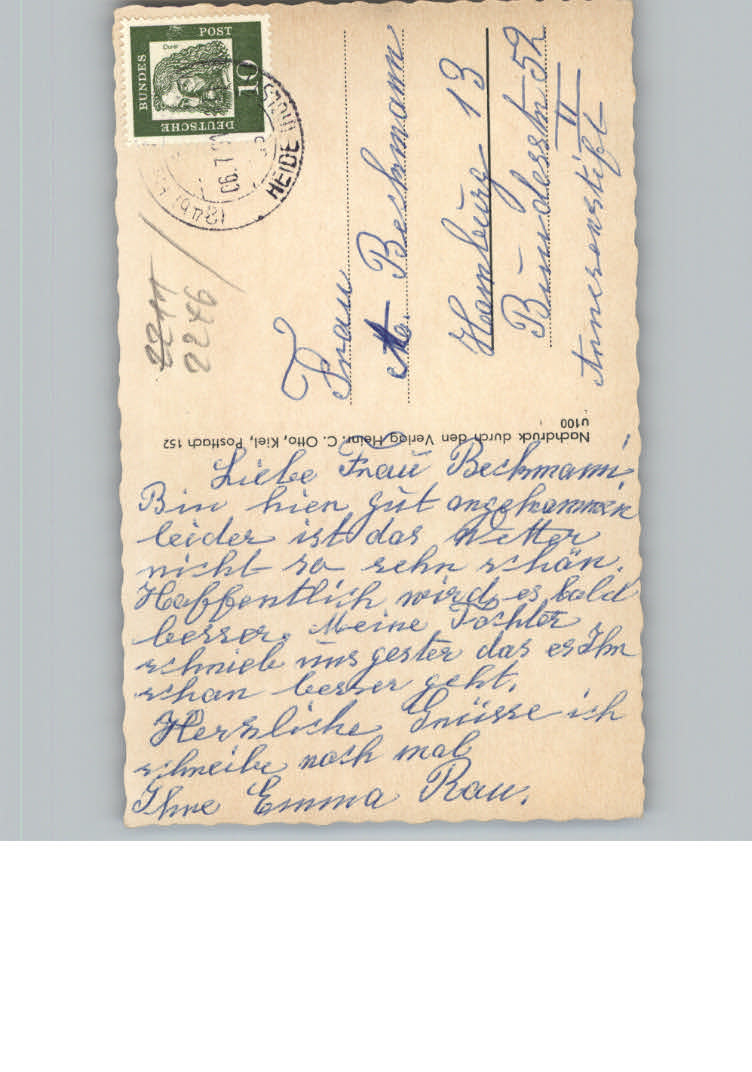 DEUTSCHE
BUNDES
POST
10
Dürer
HEIDE (HOLST
06.7.
2211
2276
Frau
A. Beckmann
Hamburg 13
Bundesstr. 52
II
Nachdruck durch den Verlag Heinr. C. Otto, Kiel, Postfach 152
u100
Liebe Frau Beckmann!
Bin hier gut angekommen
leider ist das Wetter
nicht so sehr schön.
Hoffentlich wird es bald
besser. Meine Tochter
schrieb uns gester das es Ihn
schon besser geht.
Herzliche Grüsse ich
schreibe noch mal
Ihre Emma Rau.